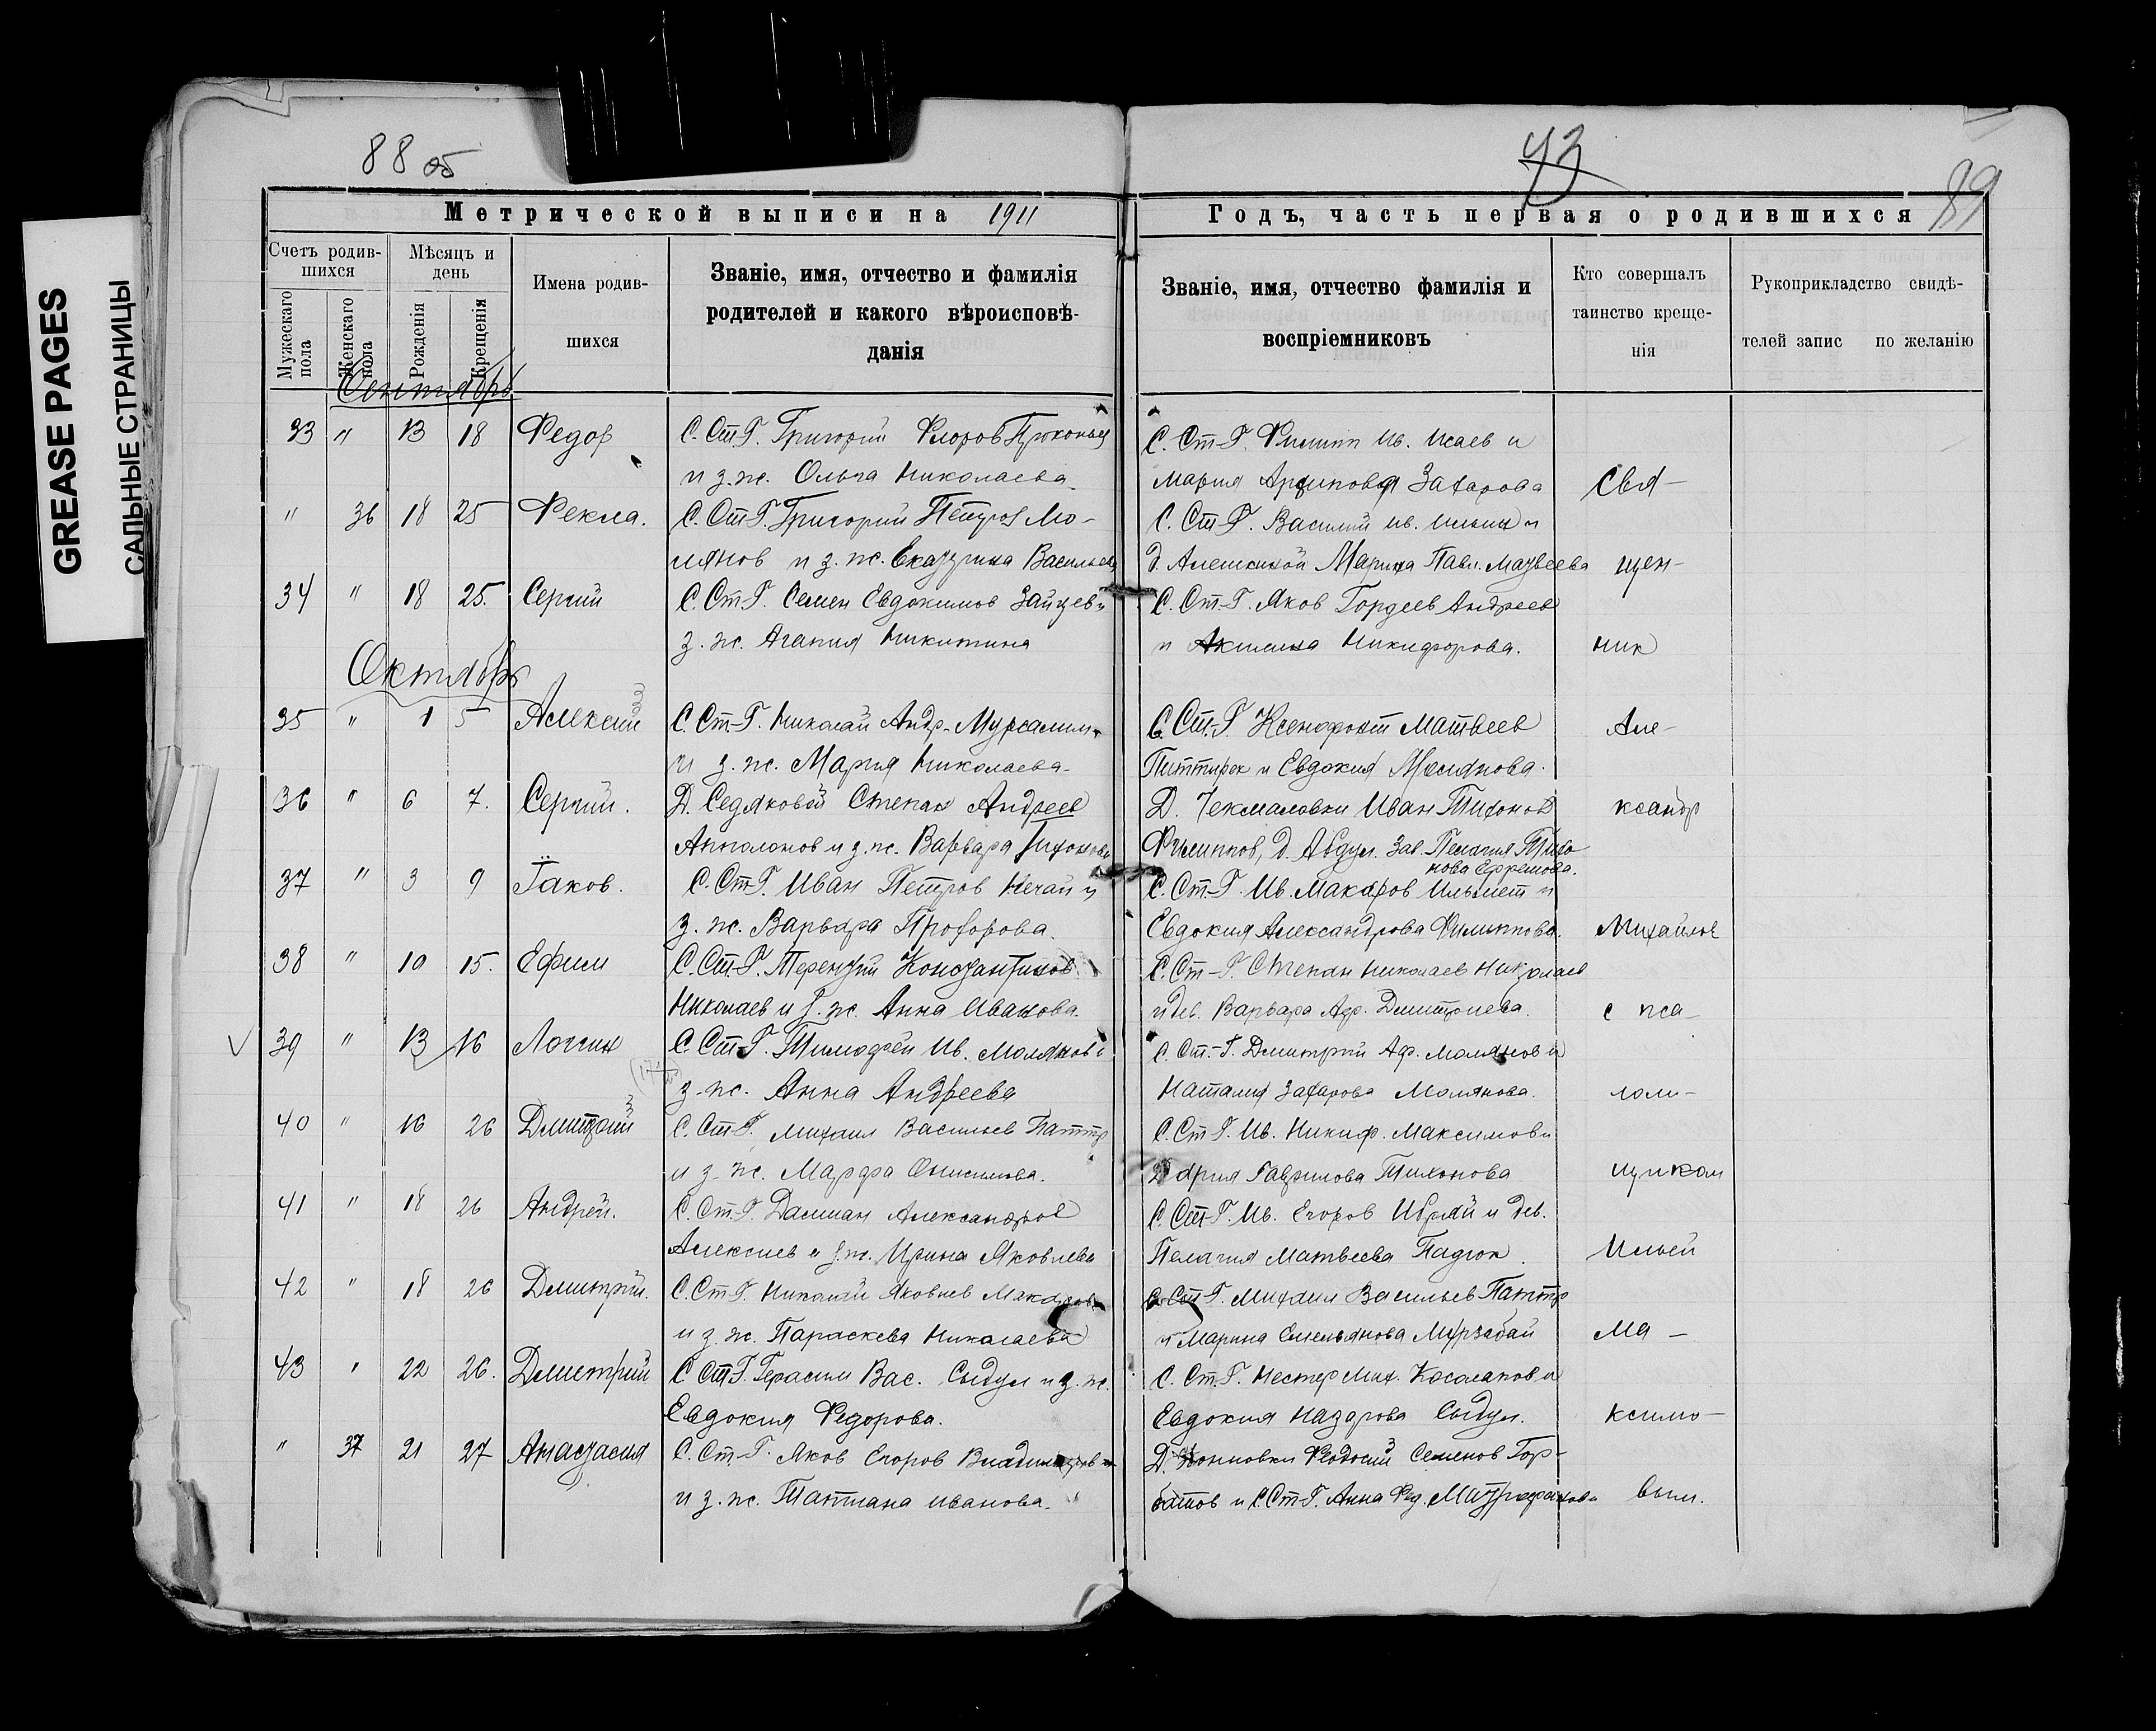 GREASE PAGES
САЛЬНЫЕ СТРАНИЦЫ
88 об
43
89
Метрической выписи на 1911
Годъ, часть первая о родившихся
Счетъ родив-
шихся
Мѣсяцъ и
день
Мужескаго
пола
Женскаго
пола
Рожденія
Крещенія
Имена родив-
шихся
Званіе, имя, отчество и фамилія
родителей и какого вѣроисповѣ-
данія
Званіе, имя, отчество фамилія и
воспріемниковъ
Кто совершалъ
таинство креще-
нія
Рукоприкладство свидѣ-
телей запис по желанію
Сентябрь
33 " 13 18 Федор С. Ст-Г. Григорий Флоров С. Ст-Г. Филипп Ив. Исаев и
и з. ж. Ольга Николаева. Мария Захарова Свя-
" 36 18 25 Фекла. С. Ст-Г. Григорий Петров Мо- С. Ст-Г. Василий Ив. Ильин и
лянов и з. ж. Екатерина д. Алешкиной Марина Павл. Матвеева щен-
34 " 18 25. Сергий С. Ст-Г. Семен Евдокимов Зайцев и С. Ст-Г. Яков Гордеев Андреев
з. ж. Агапия Никитина и Акилина Никифорова. ник
Октябрь
35 " 1 5 Алексий С. Ст-Г. Николай Андр. С. Ст-Г. Ксенофонт Матвеев Але-
и з. ж. Мария Николаева. и Евдокия Молянова.
36 " 6 7. Сергий. Д. Седяковой Степан Андреев Д. Чекмаловки Иван Тихонов ксандр
Апполонов и з. ж. Варвара Тихонова Филиппов, д. Абдул. Зав. Пелагия Тихо-
нова Ефремова.
37 " 3 9 Їаков. С. Ст-Г. Иван Петров Нечай и С. Ст-Г. Ив. Макаров и
з. ж. Варвара Прохорова. Евдокия Александрова Филиппова. Михайлов
38 " 10 15. Ефим С. Ст-Г. Терентий Константинов С. Ст-Г. Степан Николаев Николаев
Николаев и з. ж. Анна Иванова. и дев. Варвара Дмитриева. с пса-
39 " 13 16 Логгин С. Ст-Г. Тимофей Ив. Молянов и С. Ст-Г. Дмитрий Аф. Молянов и
з. ж. Анна Андреева Наталия Захарова Молянова. лом-
40 " 16 26 Димитрий С. Ст-Г. Михаил Васильев С. Ст-Г. Ив. Никиф. Максимов и
и з. ж. Марфа Онисимова. Дария Гаврилова Тихонова щиком
41 " 18 26 Андрей. С. Ст-Г. Дамиан Александров С. Ст-Г. Ив. Егоров и дев.
Алексиев и з. ж. Ирина Яковлева Пелагия Матвеева Ильей
42 " 18 26 Дмитрий. С. Ст-Г. Николай Яковлев Макаров С. Ст-Г. Михаил Васильев
и з. ж. Параскева Николаева и Марина Емельянова Мурзабай Ма-
43 " 22 26. Дмитрий С. Ст-Г. Герасим Вас. Сыдул и з. ж. С. Ст-Г. Нестер Мих. и
Евдокия Федорова. Евдокия Назарова Сыдул. ксимо-
" 37 21 27 Анастасия С. Ст-Г. Яков Егоров Владимиров Д. Феодосий Семенов Гор-
и з. ж. Татиана Иванова. батов и С. Ст-Г. Анна Фед. Митрофанова вым.